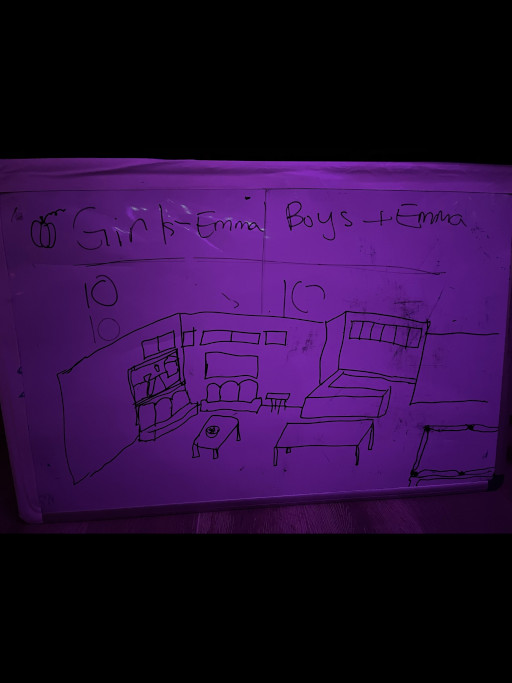 Girls-Emma Boys + Emma
10 10
10